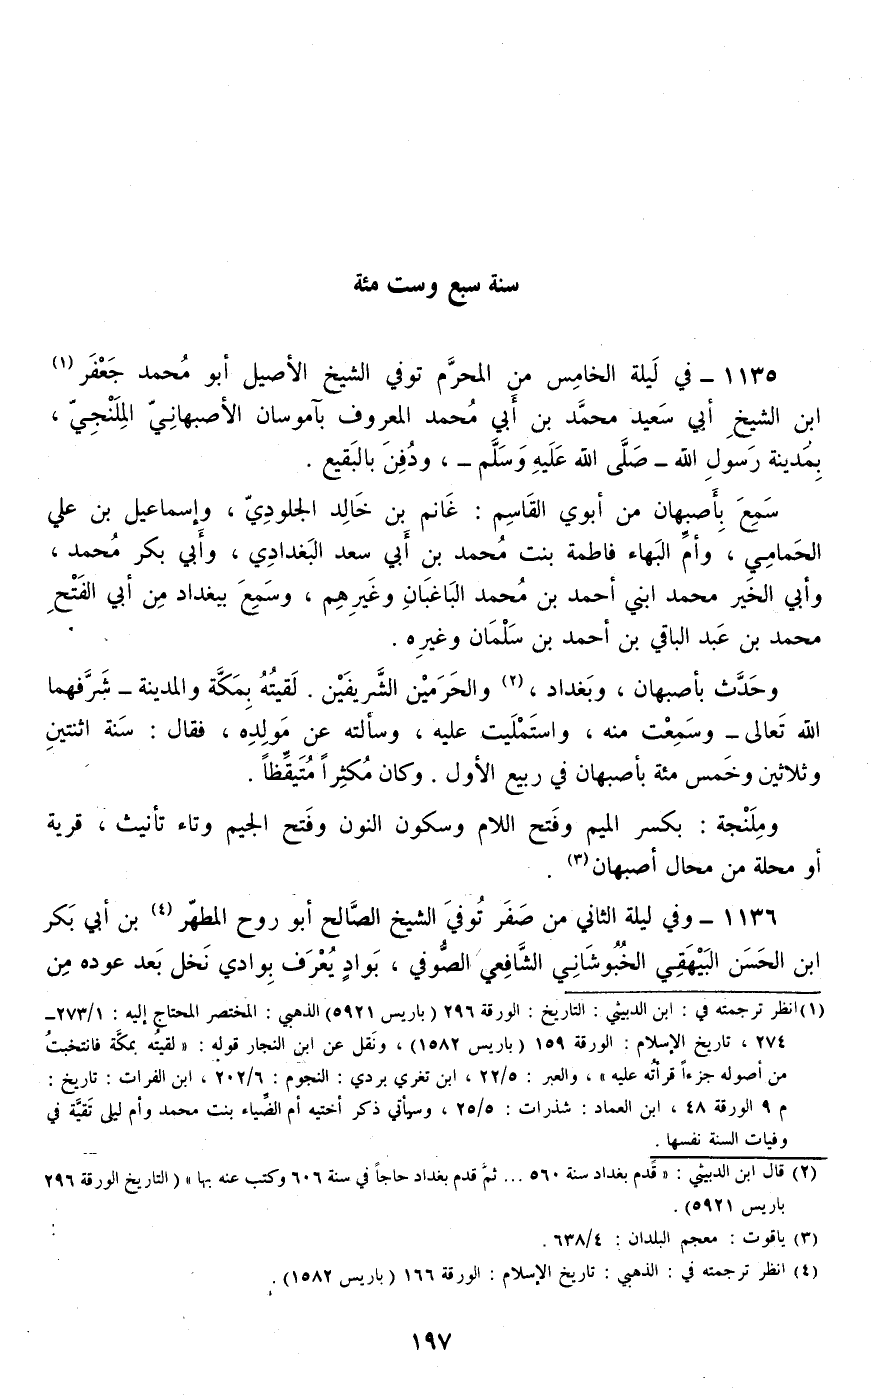 سنة سبع وست مئة
١١٣٥ ـ في لَيلة الخامِس من المحرَّم توفي الشيخ الأصيل أبو مُحمد جَعْفَر (١)
ابن الشيخِ أبي سَعيد محمَّد بن أَبي مُحمد المعروف بآموسان الأصبهانِيّ المِلَنْجِيّ ،
بِمَدينة رَسولِ الله ـ صَلَّى الله عَلَيهِ وَسَلَّم ـ ، ودُفِنَ بالبَقيع .
سَمِعَ بِأَصبهان من أبوي القَاسِم : غَانم بن خَالد الجلوديّ ، وإسماعيل بن علي
الحَمامِي ، وأمِّ البَهاء فاطمة بنت مُحمد بن أَبي سعد البَغدادِي ، وأَبي بكر مُحمد ،
وأبي الخَير محمد ابني أحمد بن مُحمد البَاغبَانِ وغَيرِهِم ، وسَمِعَ ببغداد مِن أبي الفَتْحِ
محمد بن عَبد الباقي بن أحمد بن سَلْمَان وغيرِه .
وحَدَّث بأصبهان ، وبَغداد ، (٢) والحَرَمَيْن الشَّريفَيْن . لَقيتُهُ بِمَكَّة والمدينة ـ شَرَّفهما
الله تَعالى ـ وسَمِعْت منه ، واستَمْلَيت عليه ، وسألته عن مَولِدِه ، فقال : سَنة اثنتينِ
وثلاثين وخَمس مئة بأصبهان في ربيع الأول . وكان مُكثِراً مُتَيقِّظاً .
ومِلَنْجة : بكسر الميم وفَتح اللام وسكون النون وفَتح الجيم وتاء تأنيث ، قرية
أو محلة من محال أصبهان (٣) .
١١٣٦ ـ وفي ليلة الثاني من صَفَر تُوفيَ الشيخ الصَّالح أبو روح المطهّر (٤) بن أبي بَكر
ابن الحَسَن البَيْهَقِي الخُبُوشَانِي الشَّافعِي الصُّوفي ، بَوادٍ يُعْرَف بِوادي نَخل بَعد عوده مِن
(١) انظر ترجمته في : ابن الدبيثي : التاريخ : الورقة ٢٩٦ ( باريس ٥٩٢١) الذهبي : المختصر المحتاج إليه : ٢٧٣/١ـ
٢٧٤ ، تاريخ الإسلام : الورقة ١٥٩ ( باريس ١٥٨٢) ، ونَقل عن ابن النجار قوله : « لقيتُه بمكَّة فانتخبتُ
من أصوله جزءاً قرأتُه عليه » ، والعبر : ٢٢/٥ ، ابن تغري بردي : النجوم : ٢٠٢/٦ ، ابن الفرات : تاريخ :
م ٩ الورقة ٤٨ ، ابن العماد : شذرات : ٢٥/٥ ، وسيأتي ذكر أختيه أم الضِّياء بنت محمد وأم ليلى تَقيَّة في
وفيات السنة نفسها .
(٢) قال ابن الدبيثي : « قَدم بغداد سنة ٥٦٠ ... ثمَّ قدم بغداد حاجاً في سنة ٦٠٦ وكتب عنه بها » ( التاريخ الورقة ٢٩٦
باريس ٥٩٢١) .
(٣) ياقوت : معجم البلدان : ٦٣٨/٤ .
(٤) انظر ترجمته في : الذهبي : تاريخ الإسلام : الورقة ١٦٦ ( باريس ١٥٨٢) .
١٩٧